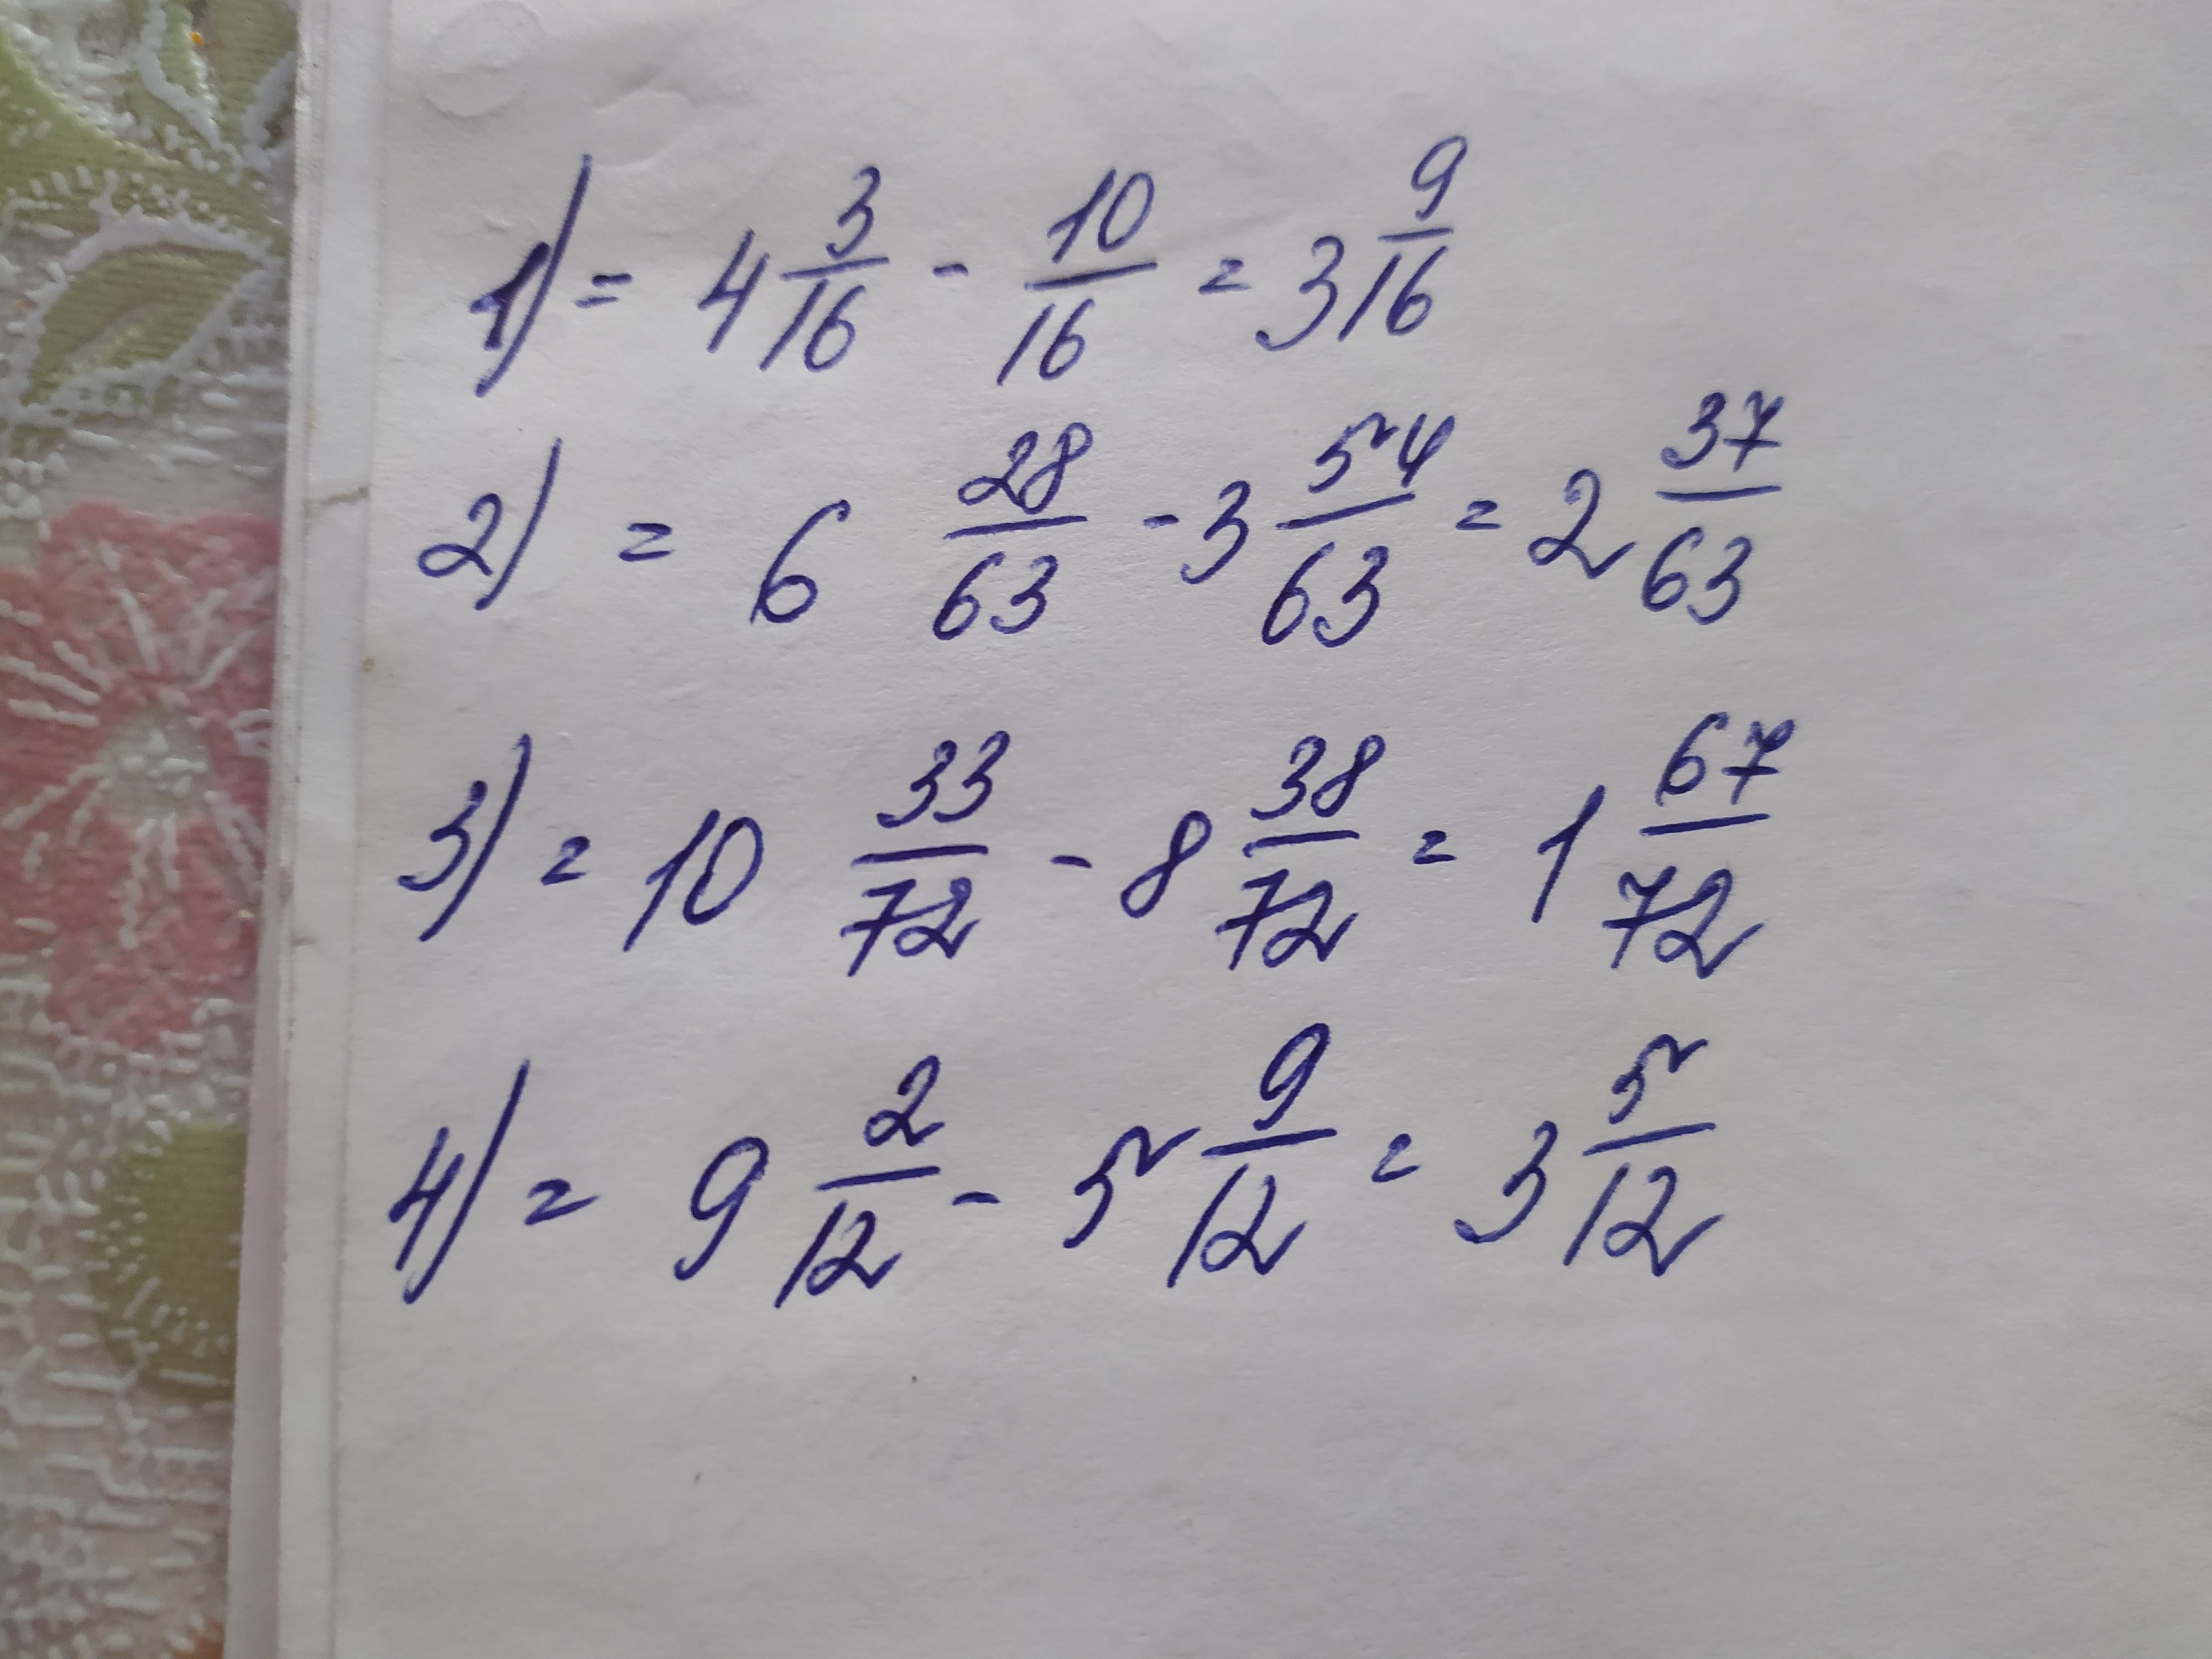 1) = 4 3/16 - 10/16 = 3 9/16
2) = 6 28/63 - 3 54/63 = 2 37/63
3) = 10 33/72 - 8 38/72 = 1 67/72
4) = 9 2/12 - 5 9/12 = 3 5/12